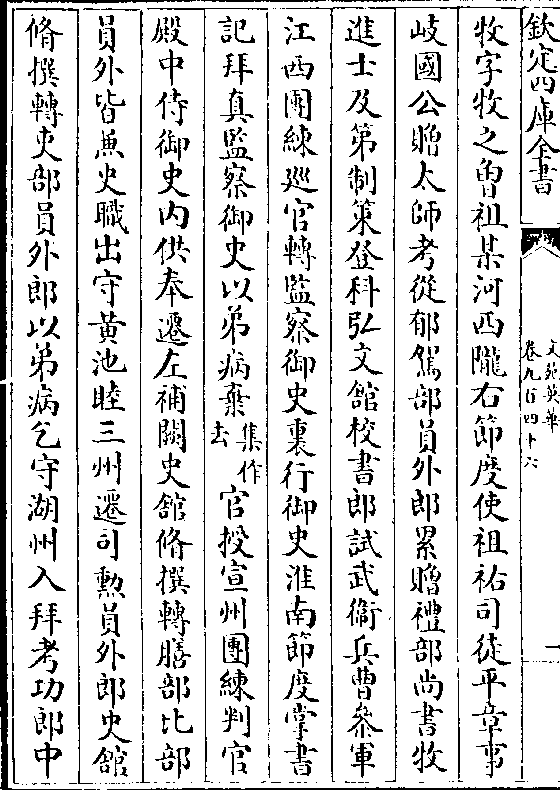 欽定四庫全書
文苑英華
卷九百四十六
一
牧字牧之曾祖某河西隴右節度使祖祐司徒平章事
岐國公贈太師考從郁駕部員外郎累贈禮部尚書牧
進士及第制策登科弘文館校書郎試武衛兵曹叅軍
江西團練廵官轉監察御史裏行御史淮南節度掌書
記拜真監察御史以弟病棄集作去官授宣州團練判官
殿中侍御史内供奉遷左補闕史館脩撰轉膳部比部
員外皆兼史職出守黄池睦三州遷司勲員外郎史館
脩撰轉吏部員外郎以弟病乞守湖州入拜考功郎中